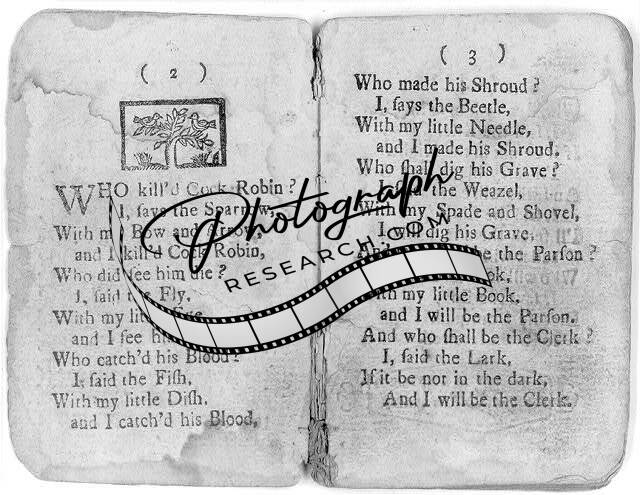 ( 2 )
WHO kill'd Cock Robin ?
I, ſays the Sparrow,
With my Bow and Arrow,
and I kill'd Cock Robin,
Who did ſee him die ?
I, ſaid the Fly,
With my
and I ſee
Who catch'd his Blood ?
I, ſaid the Fiſh,
With my little Diſh,
and I catch'd his Blood,
( 3 )
Who made his Shroud ?
I, ſays the Beetle,
With my little Needle,
and I made his Shroud.
Who ſhall dig his Grave ?
the Weazel,
With my Spade and Shovel,
I dig his Grave,
be the Parſon ?
With my little Book,
and I will be the Parſon.
And who ſhall be the Clerk ?
I, ſaid the Lark,
If it be not in the dark,
And I will be the Clerk.
Photograph
RESEARCH.COM